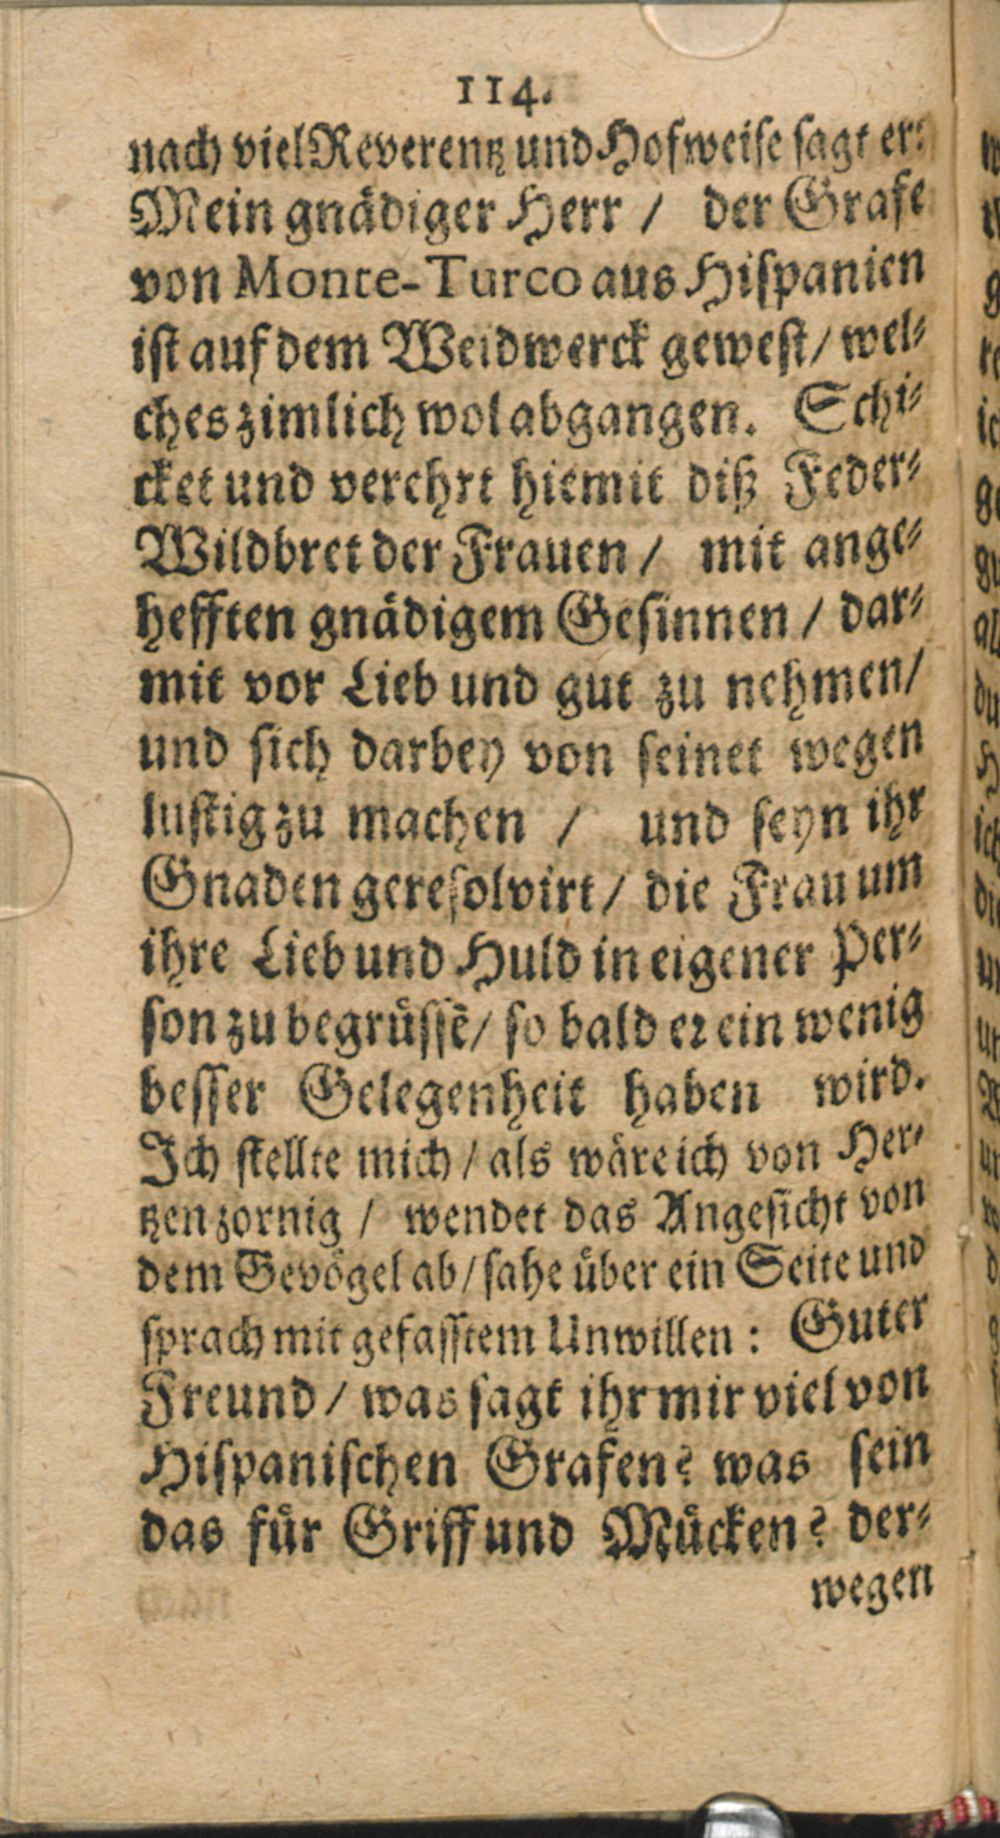 114.
nach viel Reverentz und Hofweise sagt er:
Mein gnädiger Herr / der Grafe
von Monte-Turco aus Hispanien
ist auf dem Weidwerck gewest / wel-
ches zimlich wol abgangen. Schi-
cket und verehrt hiemit diß Feder-
Wildbret der Frauen / mit ange-
hefften gnädigem Gesinnen / dar-
mit vor Lieb und gut zu nehmen /
und sich darbey von seinet wegen
lustig zu machen / und seyn ihr
Gnaden geresolvirt / die Frau um
ihre Lieb und Huld in eigener Per-
son zu begrüssē / so bald er ein wenig
besser Gelegenheit haben wird.
Ich stellte mich / als wäre ich von Her-
tzen zornig / wendet das Angesicht von
dem Gevögel ab / sahe über ein Seite und
sprach mit gefasstem Unwillen: Guter
Freund / was sagt ihr mir viel von
Hispanischen Grafen? was sein
das für Griff und Mücken? der-
wegen